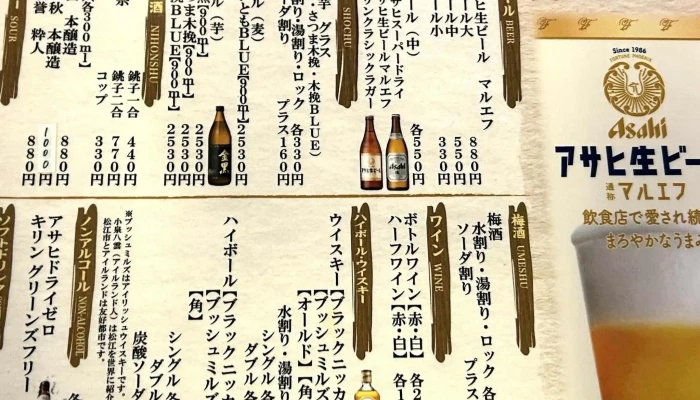 ール BEER
ヒ生ビール マルエフ
ール大
ール中
ール小
880円
550円
330円
ール（中）
サヒスーパードライ
サヒ生ビールマルエフ
リンクラシックラガー
各550円
SHOCHU
芋 グラス
・さつま木挽・木挽BLUE）
割り・湯割り・ロック 各330円
ーダ割り プラス160円
ル（麦）
ともBLUE【900ml】 2530円
ル（芋）
【900ml】
ま木挽【900ml】 2530円
BLUE【900ml】 2530円
金黒
酒 NIHONSHU
銚子一合 440円
銚子二合 770円
コップ 330円
各300ml】
本醸造 880円
秋 本醸造 1000円
誉 粋人 880円
ー SOUR
梅酒 UMESHU
梅酒
水割り・湯割り・ロック 各
ソーダ割り プラス
ワイン WINE
ボトルワイン【赤・白】 各2
ハーフワイン【赤・白】 各1
ハイボール・ウイスキー
ウイスキー【ブラックニッカ
【ブッシュミルズ
【オールド】【角】
水割り・湯割り
シングル 各
ダブル 各
ハイボール【ブラックニッカ
【ブッシュミルズ
【角】
シングル 各
ダブル
炭酸ソーダ
※ブッシュミルズはアイリッシュウイスキーです。
小泉八雲（アイルランド人）は松江を世界に紹介
松江市とアイルランドは友好都市です。
ノンアルコール NON-ALCOHOL
アサヒドライゼロ
キリン グリーンズフリー
ソフトドリンク
Since 1986
FORTUNE PHOENIX
Asahi
アサヒ生ビー
通称 マルエフ
飲食店で愛され続
まろやかなうまみ